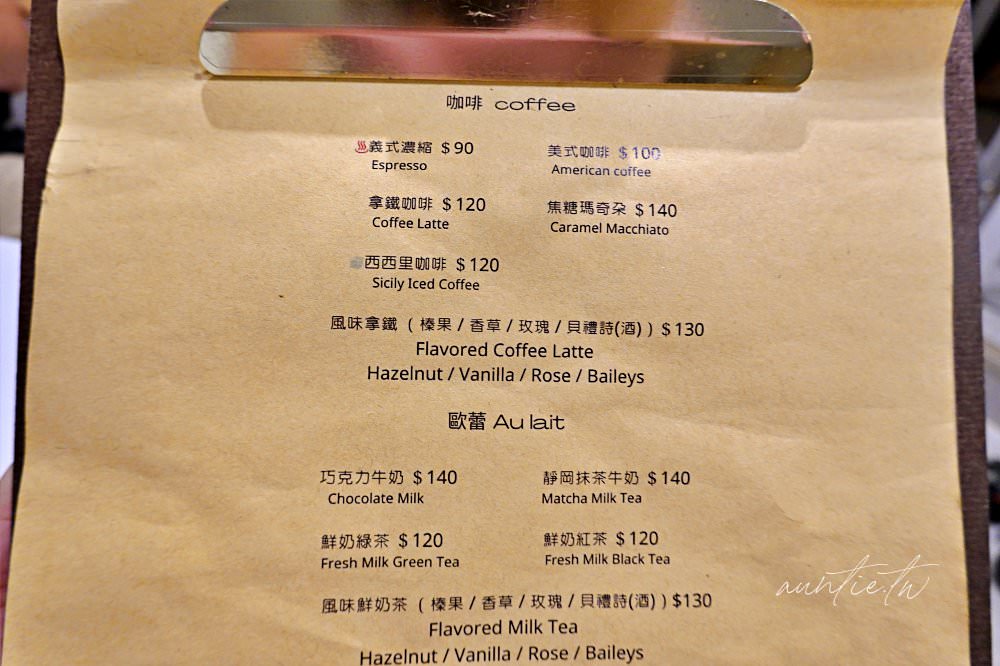 咖啡 coffee
義式濃縮 $90
Espresso
美式咖啡 $100
American coffee
拿鐵咖啡 $120
Coffee Latte
焦糖瑪奇朵 $140
Caramel Macchiato
西西里咖啡 $120
Sicily Iced Coffee
風味拿鐵 ( 榛果 / 香草 / 玫瑰 / 貝禮詩(酒) ) $130
Flavored Coffee Latte
Hazelnut / Vanilla / Rose / Baileys
歐蕾 Au lait
巧克力牛奶 $140
Chocolate Milk
靜岡抹茶牛奶 $140
Matcha Milk Tea
鮮奶綠茶 $120
Fresh Milk Green Tea
鮮奶紅茶 $120
Fresh Milk Black Tea
風味鮮奶茶 ( 榛果 / 香草 / 玫瑰 / 貝禮詩(酒) ) $130
Flavored Milk Tea
Hazelnut / Vanilla / Rose / Baileys
auntie.tw